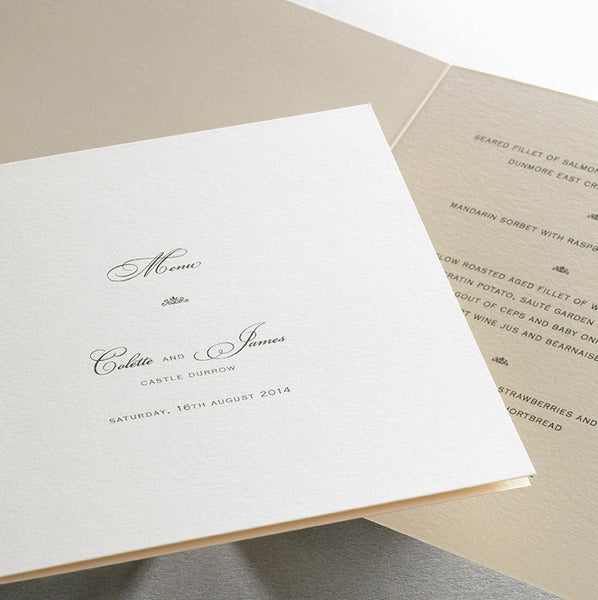 Menu
Colette AND James
CASTLE DURROW
SATURDAY, 16TH AUGUST 2014
SEARED FILLET OF SALMON
DUNMORE EAST
MANDARIN SORBET WITH
ROASTED AGED FILLET OF
POTATO, SAUTÉ GARDEN
OF CEPS AND BABY
WINE JUS AND BÉARNAISE
STRAWBERRIES AND